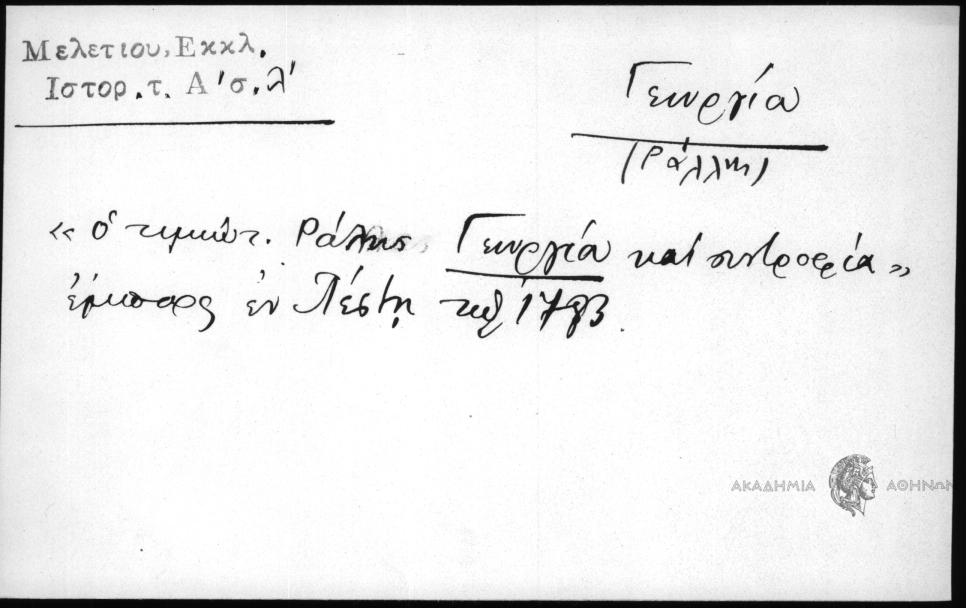 Μελετίου, Εκκλ.
Ιστορ. τ. Α' σ. λ'
Γεωργία
(Ράλλης)
« ὁ τιμιώτ. Ράλης Γεωργία καί συντροφία »
ἔμπορος ἐν Πέστῃ τῷ 1783.
ΑΚΑΔΗΜΙΑ ΑΘΗΝΩΝ